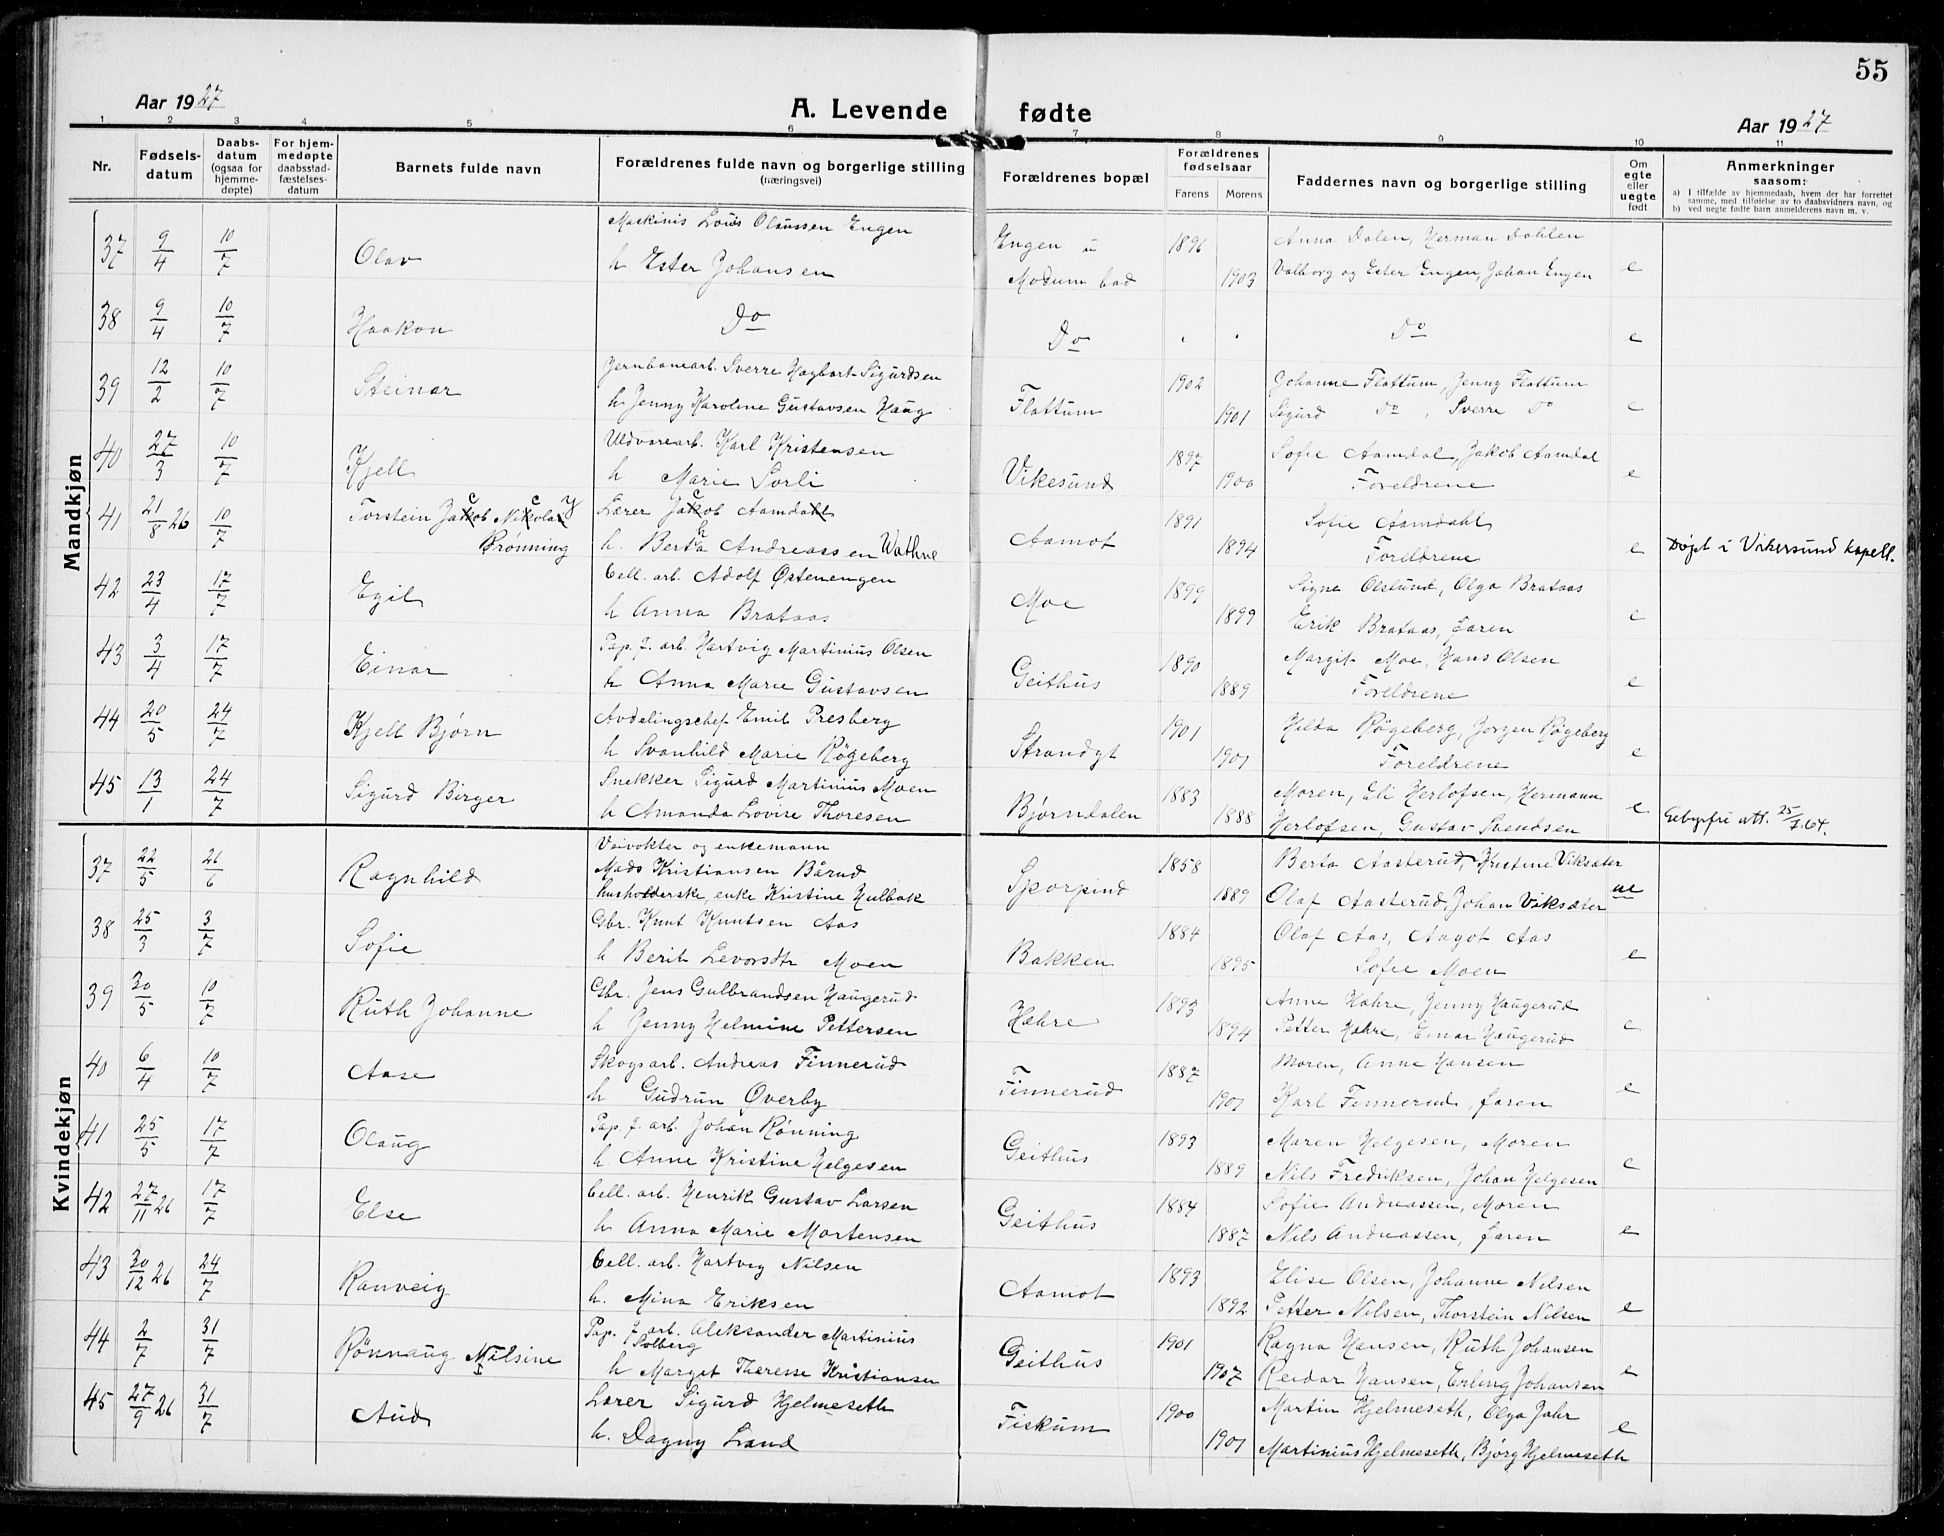 55
Aar 1927
A. Levende fødte
Aar 1927
1 2 3 4 5 6 7 8 9 10 11
Nr. Fødsels-datum Daabs-datum (ogsaa for hjemme-døpte) For hjem-medøpte daabsstad-fæstelses-datum Barnets fulde navn Forældrenes fulde navn og borgerlige stilling (næringsvei) Forældrenes bopæl Forældrenes fødselsaar Farens Morens Faddernes navn og borgerlige stilling Om egte eller uegte født Anmerkninger saasom:
a) I tilfælde av hjemmedaab, hvem der har forrettet samme, med tilføielse av to daabsvidners navn, og
b) ved uegte fødte barn anmelderens navn m. v.
Mandkjøn
Maskinis Louis Olaussen Engen 1896 Anna Dalen, Herman Dahlen
37 9/4 10/7 Olav h Ester Johansen Engen u Modum bad 1903 Valborg og Ester Engen, Johan Engen e
38 9/4 10/7 Haakon Do Do . . Do e
39 12/2 10/7 Steinar Jernbanearb. Sverre Hagbart Sigurdsen Flattum 1902 Johanne Flattum, Jenny Flattum
h Jenny Karoline Gustavsen Haug 1901 Sigurd Do, Sverre Do e
40 27/3 10/7 Kjell Uldvarearb. Karl Kristensen Vikesund 1897 Sofie Aamdal, Jakob Aamdal
h Marie Sorli 1900 Foreldrene e
41 21/8 26 10/7 Torstein Jacob Nicolay Lærer Jacob Aamdal Aamot 1891 Sofie Aamdahl
Brönning h. Bertha Andreassen Wathne 1894 Foreldrene e Døpt i Vikersund kapell.
42 23/4 17/7 Egil Cell. arb. Adolf Østenengen Moe 1899 Signe Olslund, Olga Brataas
h Anna Brataas 1899 Erik Brataas, faren e
43 3/4 17/7 Einar Pap. f. arb. Hartvig Martinius Olsen Geithus 1890 Margit Moe, Hans Olsen
h Anna Marie Gustavsen 1889 Foreldrene e
44 20/5 24/7 Kjell Bjørn Avdelingschef Emil Presberg Strandgt 1901 Hilda Røgeberg, Jørgen Røgeberg
h Svanhild Marie Røgeberg 1901 Foreldrene e
45 13/1 24/7 Sigurd Birger Snekker Sigurd Martinius Moen Bjørndalen 1883 Moren, Eli Herlofsen, Hermann
h Amanda Lovise Thoresen 1888 Herlofsen, Gustav Svendsen e Gebyrfri att. 25/7.64.
Kvindekjøn
Veivokter og enkemann
37 22/5 26/6 Ragnhild Mads Kristiansen Bårud 1858 Berta Aasterud, Kristine Viksæter
husholderske, enke Kristine Hulbak 1889 Olaf Aasterud, Johan Viksæter ue
38 25/3 3/7 Sofie Gbr. Knut Knutsen Aas Bakken 1884 Olaf Aas, Aagot Aas
h Berit Levorsdtr Moen 1895 Sofie Moen e
39 20/5 10/7 Ruth Johanne Gbr. Jens Gulbrandsen Haugerud Hæhre 1893 Anne Hæhre, Jenny Haugerud
h Jenny Helmine Pettersen 1894 Petter Hæhre, Einar Haugerud e
40 6/4 10/7 Aase Skogsarb. Andreas Finnerud Finnerud 1887 Moren, Anne Hansen
h Gudrun Øverby 1901 Karl Finnerud, faren e
41 25/5 17/7 Olaug Pap. f. arb. Johan Rønning Geithus 1893 Maren Helgesen, Moren
h. Anne Kristine Helgesen 1889 Nils Fredriksen, Johan Helgesen e
42 27/11 26 17/7 Else Cell. arb. Henrik Gustav Larsen Geithus 1884 Sofie Andreassen, Moren
h. Anna Marie Mortensen 1887 Nils Andreassen, faren e
43 20/12 26 24/7 Ranveig Cell. arb. Hartvig Nilsen Aamot 1893 Elise Olsen, Johanne Nilsen
h. Mina Eriksen 1892 Petter Nilsen, Thorstein Nilsen e
44 2/7 31/7 Rønnaug Nilsine Pap. f. arb. Aleksander Martinius Solberg Geithus 1901 Ragna Hansen, Ruth Johansen
h Marget Therese Kristiansen 1907 Reidar Hansen, Erling Johansen e
45 27/9 26 31/7 Aud Lærer Sigurd Hjelmeseth Fiskum 1900 Martin Hjelmeseth, Olga Jahr
h. Dagny Land 1901 Martinius Hjelmeseth, Bjørg Hjelmeseth e